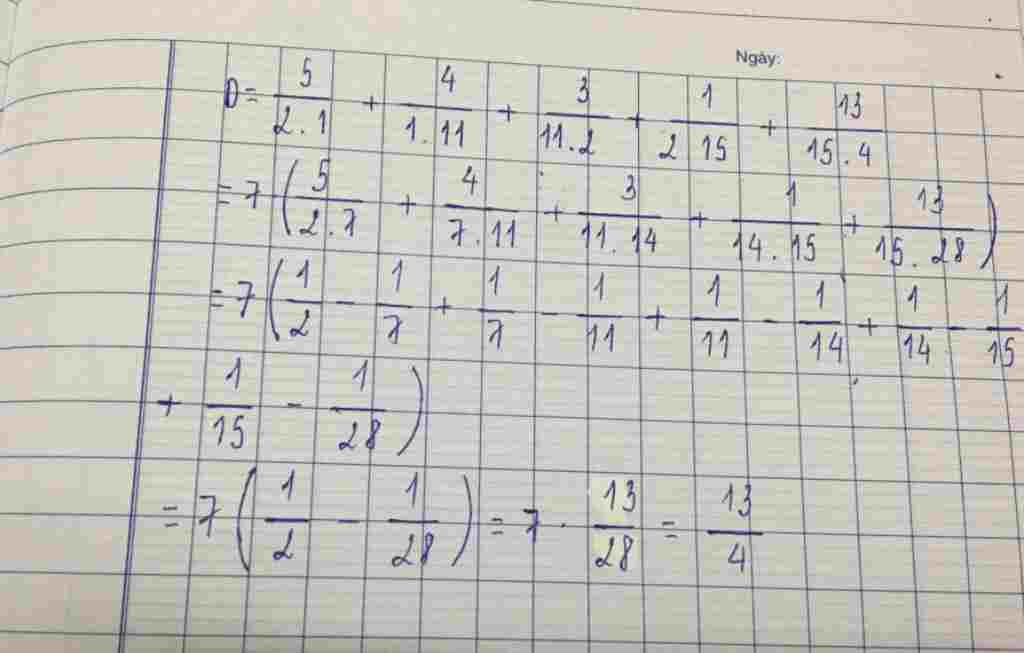 Ngày:
D = 5/2.1 + 4/1.11 + 3/11.2 + 1/2 15 + 13/15.4
= 7 (5/2.7 + 4/7.11 + 3/11.14 + 1/14.15 + 13/15.28)
= 7 (1/2 - 1/7 + 1/7 - 1/11 + 1/11 - 1/14 + 1/14 - 1/15
+ 1/15 - 1/28)
= 7 (1/2 - 1/28) = 7 . 13/28 = 13/4